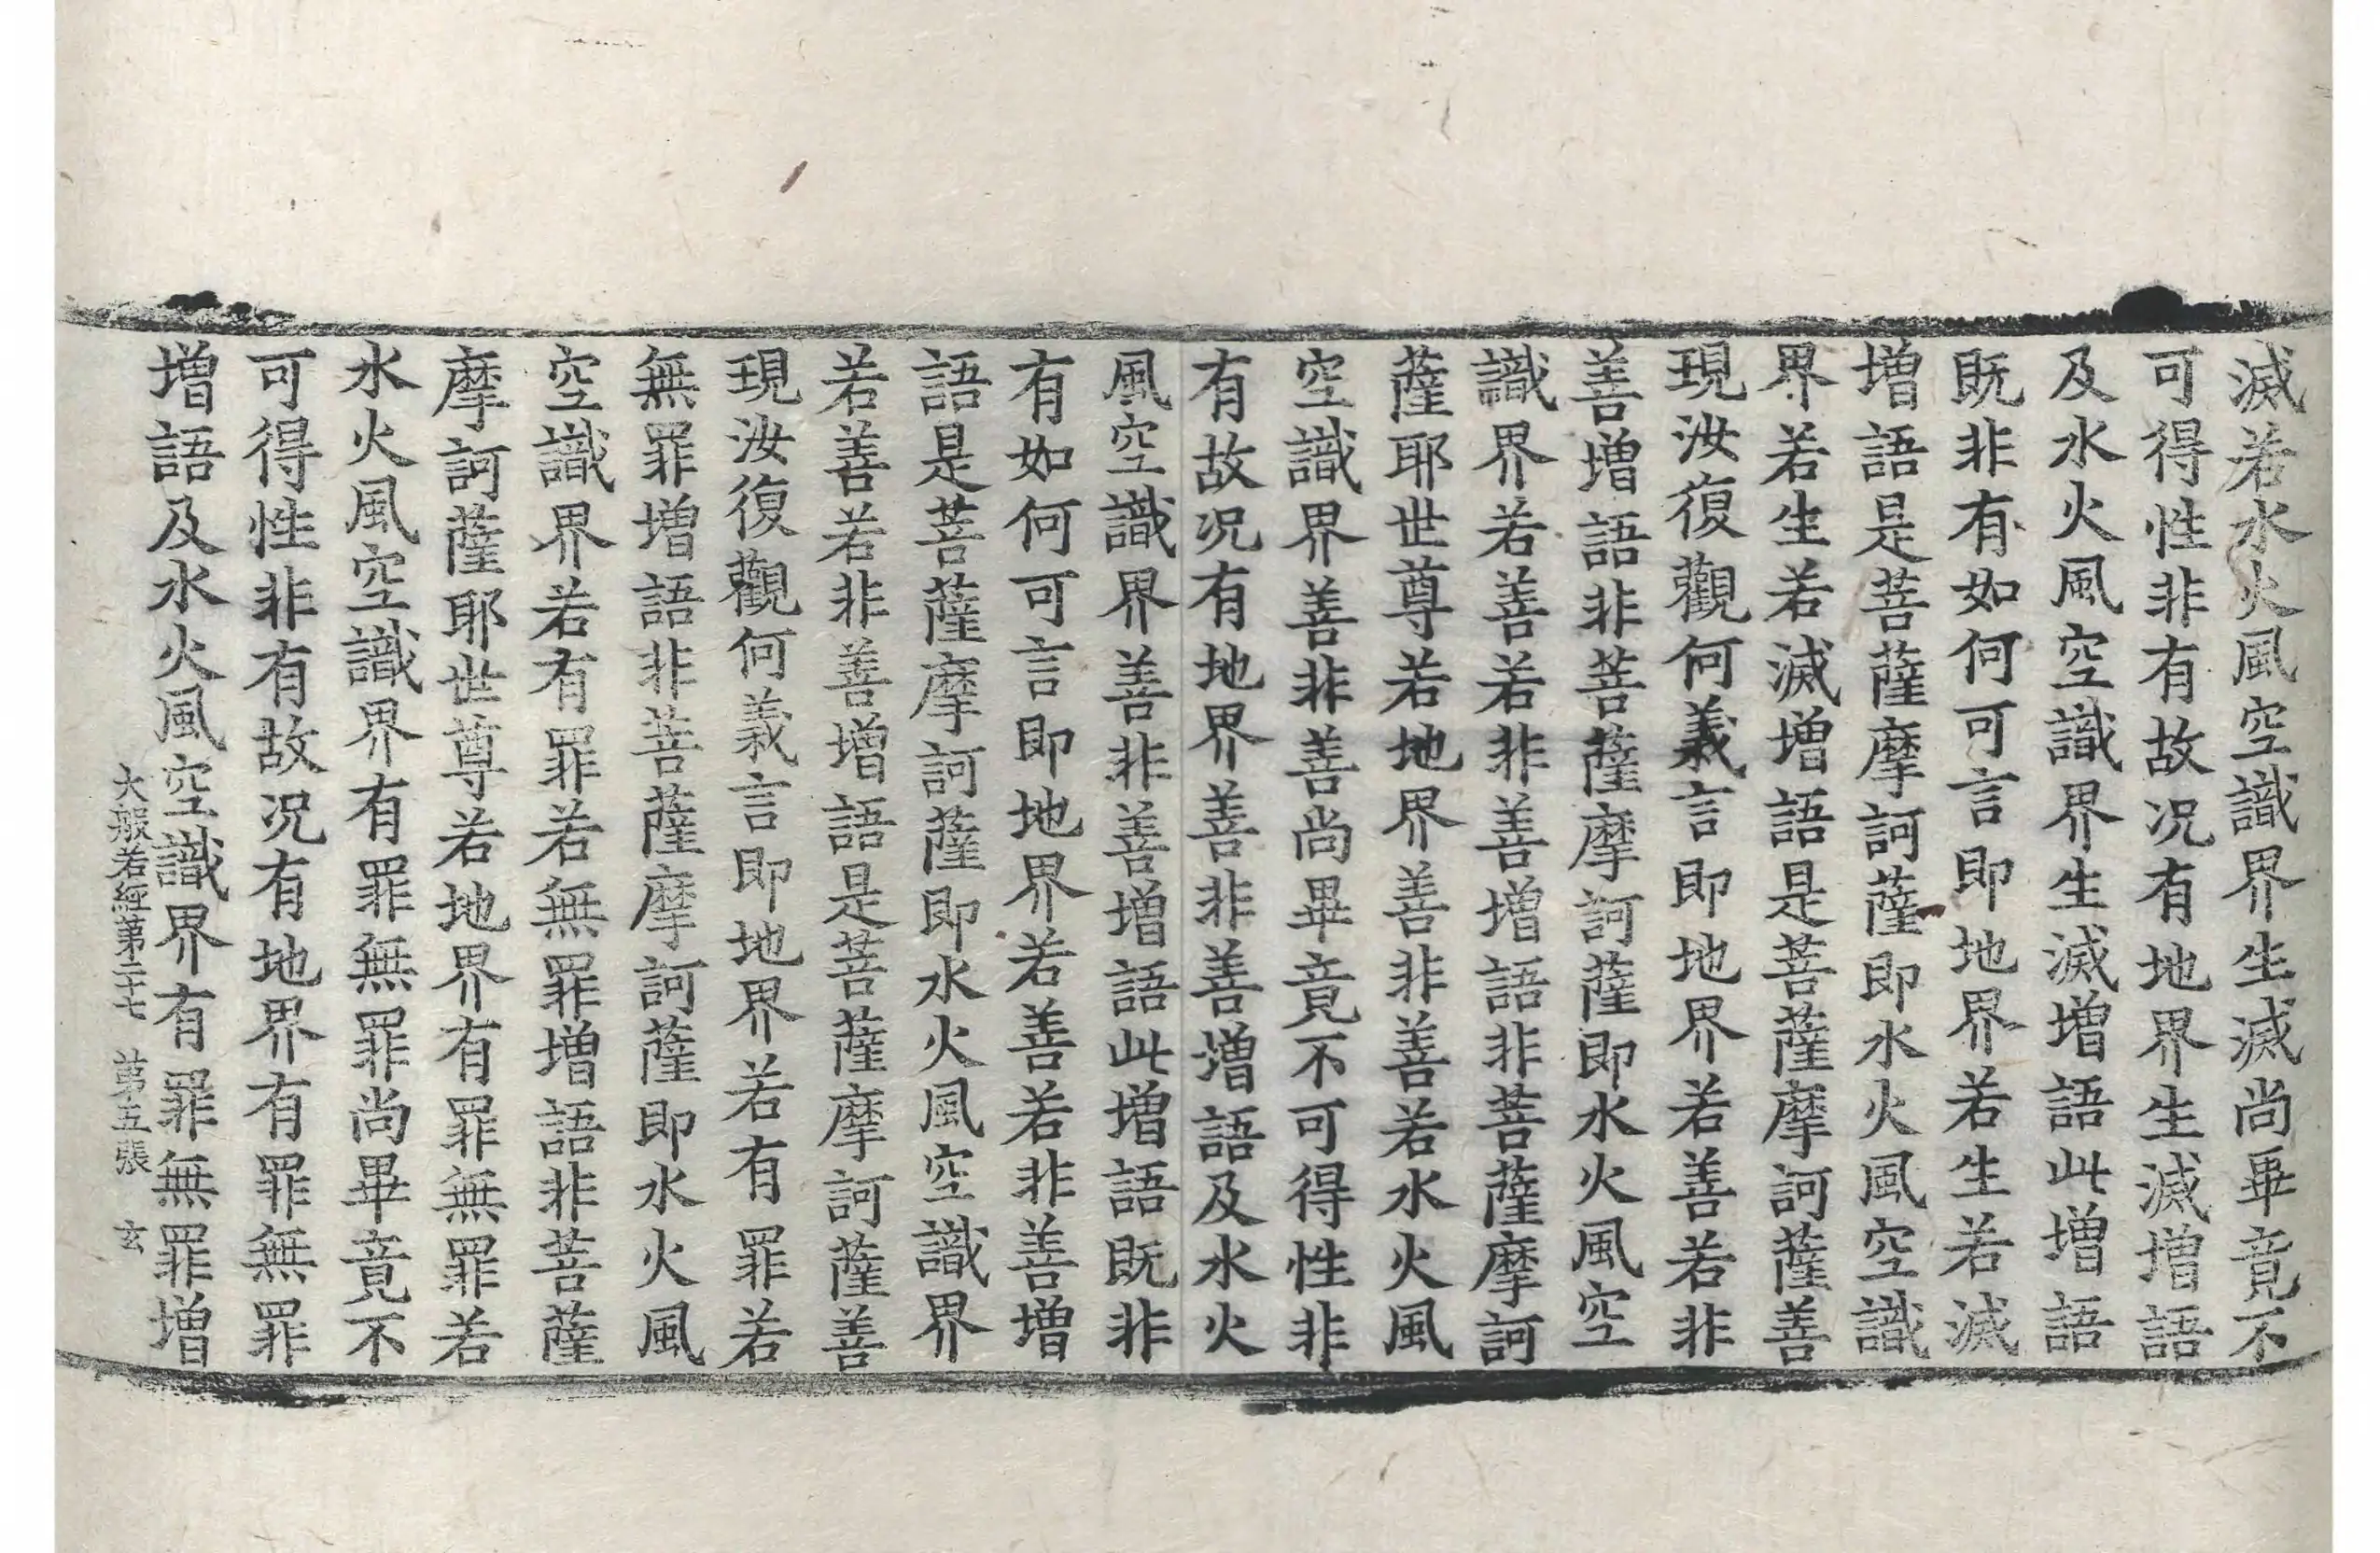 滅若水火風空識界生滅尚畢竟不
可得性非有故况有地界生滅增語
及水火風空識界生滅增語此增語
既非有如何可言即地界若生若滅
增語是菩薩摩訶薩即水火風空識
界若生若滅增語是菩薩摩訶薩善
現汝復觀何義言即地界若善若非
善增語非菩薩摩訶薩即水火風空
識界若善若非善增語非菩薩摩訶
薩耶世尊若地界善非善若水火風
空識界善非善尚畢竟不可得性非
有故况有地界善非善增語及水火
風空識界善非善增語此增語既非
有如何可言即地界若善若非善增
語是菩薩摩訶薩即水火風空識界
若善若非善增語是菩薩摩訶薩善
現汝復觀何義言即地界若有罪若
無罪增語非菩薩摩訶薩即水火風
空識界若有罪若無罪增語非菩薩
摩訶薩耶世尊若地界有罪無罪若
水火風空識界有罪無罪尚畢竟不
可得性非有故况有地界有罪無罪
增語及水火風空識界有罪無罪增
大般若經第二十七 第五張 玄